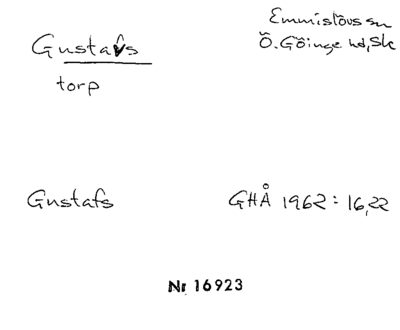 Gustavs
torp
Emmislövs sn
Ö. Göinge hd, Sk
Gustafs
GHÅ 1962: 16,22
Nr 16923